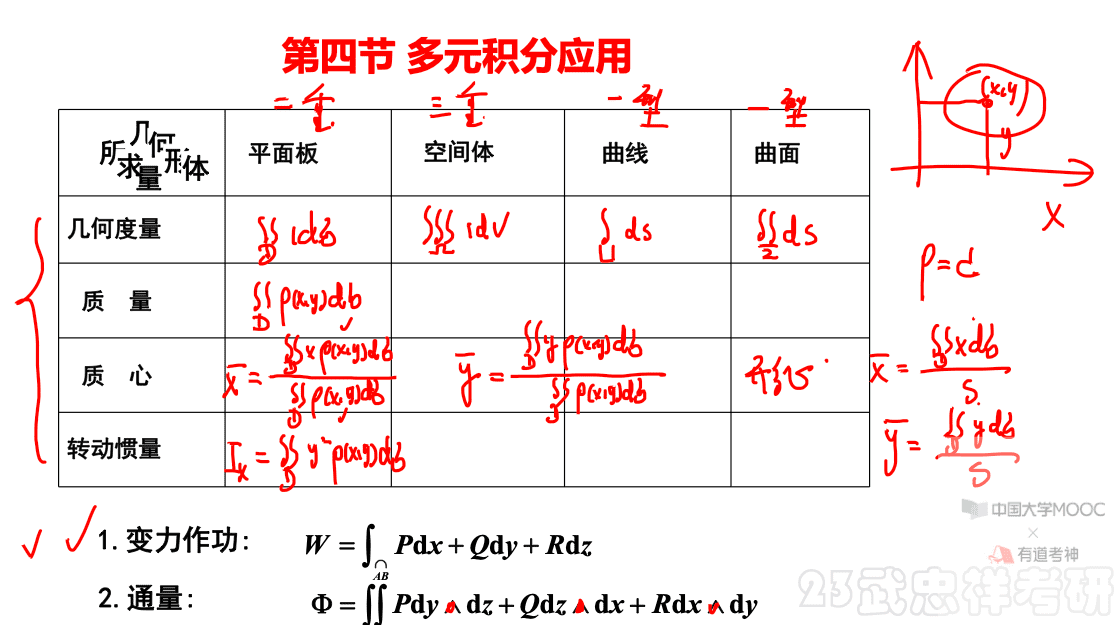 第四节 多元积分应用
二重 三重 一型 一型
所求量 几何形体 平面板 空间体 曲线 曲面
几何度量 ∬_D 1dσ ∭_Ω 1dV ∫_L ds ∬_Σ ds
质 量 ∬_D ρ(x,y)dσ
质 心 x̄ = ∬_D xρ(x,y)dσ / ∬_D ρ(x,y)dσ ȳ = ∬_D yρ(x,y)dσ / ∬_D ρ(x,y)dσ 形心
转动惯量 I_x = ∬_D y²ρ(x,y)dσ
(x,y)
y
x
ρ=c
x̄ = ∬_D xdσ / S
ȳ = ∬_D ydσ / S
1.变力作功: W = ∫_{AB} Pdx + Qdy + Rdz
2.通量: Φ = ∬ Pdy∧dz + Qdz∧dx + Rdx∧dy
中国大学MOOC
×
有道考神
23武忠祥考研